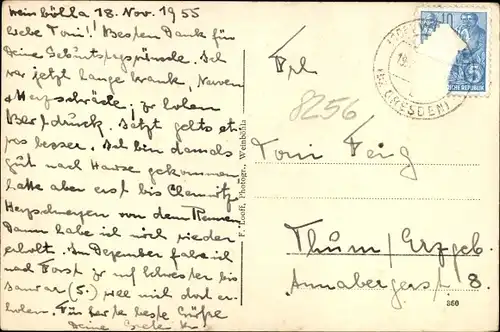 Weinböhla 18. Nov. 1955
Liebe Toni! Besten Dank für
Deine Geburtstagswünsche. Ich
war jetzt lange krank, Nerven
+ Herzschwäche, zu hohen
Blutdruck. Jetzt gehts et-
was besser. Ich bin damals
gut nach Hause gekommen
hatte aber erst bis Chemnitz
Herzschmerzen von dem Rennen
Dann habe ich mich wieder
erholt. Im Dezember fahre ich
nach zur Schwester bis
Januar (5.) will mich dort er-
holen. Für heute beste Grüße
Deine
F. Looff, Photogr., Weinböhla
10
DEUTSCHE REPUBLIK
(BZ. DRESDEN)
Frl.
8256
Toni Feig
Thum/Erzgeb.
Annabergerstr. 8.
360